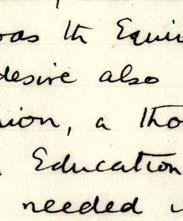 was th Equi
desire also
nion, a tho
Education
needed